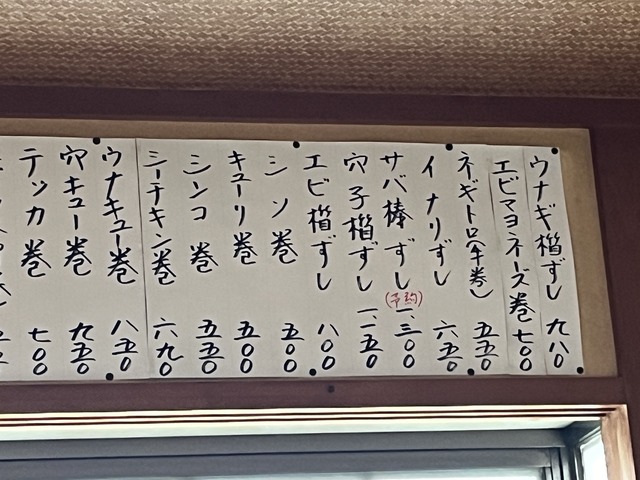 ウナギ楷ずし 九八〇
エビマヨネーズ巻 七〇〇
ネギトロ(半巻) 五五〇
イナリずし 六五〇
サバ棒ずし(予約) 一、三〇〇
穴子楷ずし 一、一五〇
エビ楷ずし 八〇〇
シソ巻 五〇〇
キューリ巻 五〇〇
シンコ巻 五五〇
シーチキン巻 六九〇
ウナキュー巻 八五〇
穴キュー巻 九五〇
テッカ巻 七〇〇